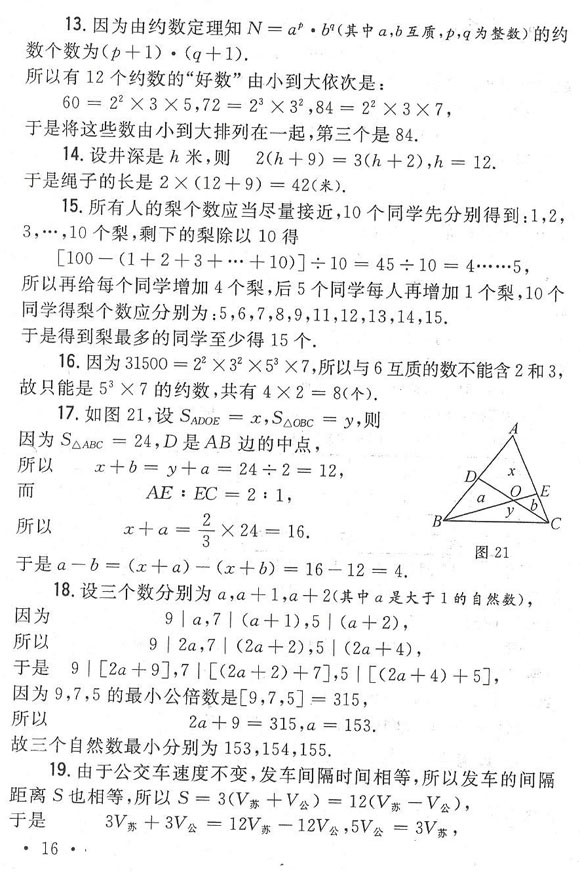 13. 因为由约数定理知 N = aᵖ · b^q (其中 a,b 互质,p,q 为整数) 的约
数个数为(p+1)·(q+1).
所以有 12 个约数的“好数”由小到大依次是:
60 = 2² × 3 × 5,72 = 2³ × 3²,84 = 2² × 3 × 7,
于是将这些数由小到大排列在一起,第三个是 84.
14. 设井深是 h 米,则 2(h+9) = 3(h+2),h = 12.
于是绳子的长是 2×(12+9) = 42(米).
15. 所有人的梨个数应当尽量接近,10 个同学先分别得到:1,2,
3,…,10 个梨,剩下的梨除以 10 得
[100-(1+2+3+…+10)]÷10 = 45÷10 = 4……5,
所以再给每个同学增加 4 个梨,后 5 个同学每人再增加 1 个梨,10 个
同学得梨个数应分别为:5,6,7,8,9,11,12,13,14,15.
于是得到梨最多的同学至少得 15 个.
16. 因为 31500 = 2² × 3² × 5³ × 7,所以与 6 互质的数不能含 2 和 3,
故只能是 5³ × 7 的约数,共有 4 × 2 = 8(个).
17. 如图 21,设 S_ADOE = x,S_△OBC = y,则
因为 S_△ABC = 24,D 是 AB 边的中点,
所以 x+b = y+a = 24÷2 = 12,
而 AE : EC = 2 : 1,
所以 x+a = 2/3 × 24 = 16.
于是 a-b = (x+a)-(x+b) = 16-12 = 4.
A
x
D
O E
a b
y
B C
图 21
18. 设三个数分别为 a,a+1,a+2(其中 a 是大于 1 的自然数),
因为 9|a,7|(a+1),5|(a+2),
所以 9|2a,7|(2a+2),5|(2a+4),
于是 9|[2a+9],7|[(2a+2)+7],5|[(2a+4)+5],
因为 9,7,5 的最小公倍数是[9,7,5] = 315,
所以 2a+9 = 315,a = 153.
故三个自然数最小分别为 153,154,155.
19. 由于公交车速度不变,发车间隔时间相等,所以发车的间隔
距离 S 也相等,所以 S = 3(V苏+V公) = 12(V苏-V公),
于是 3V苏+3V公 = 12V苏-12V公,5V公 = 3V苏,
· 16 ·